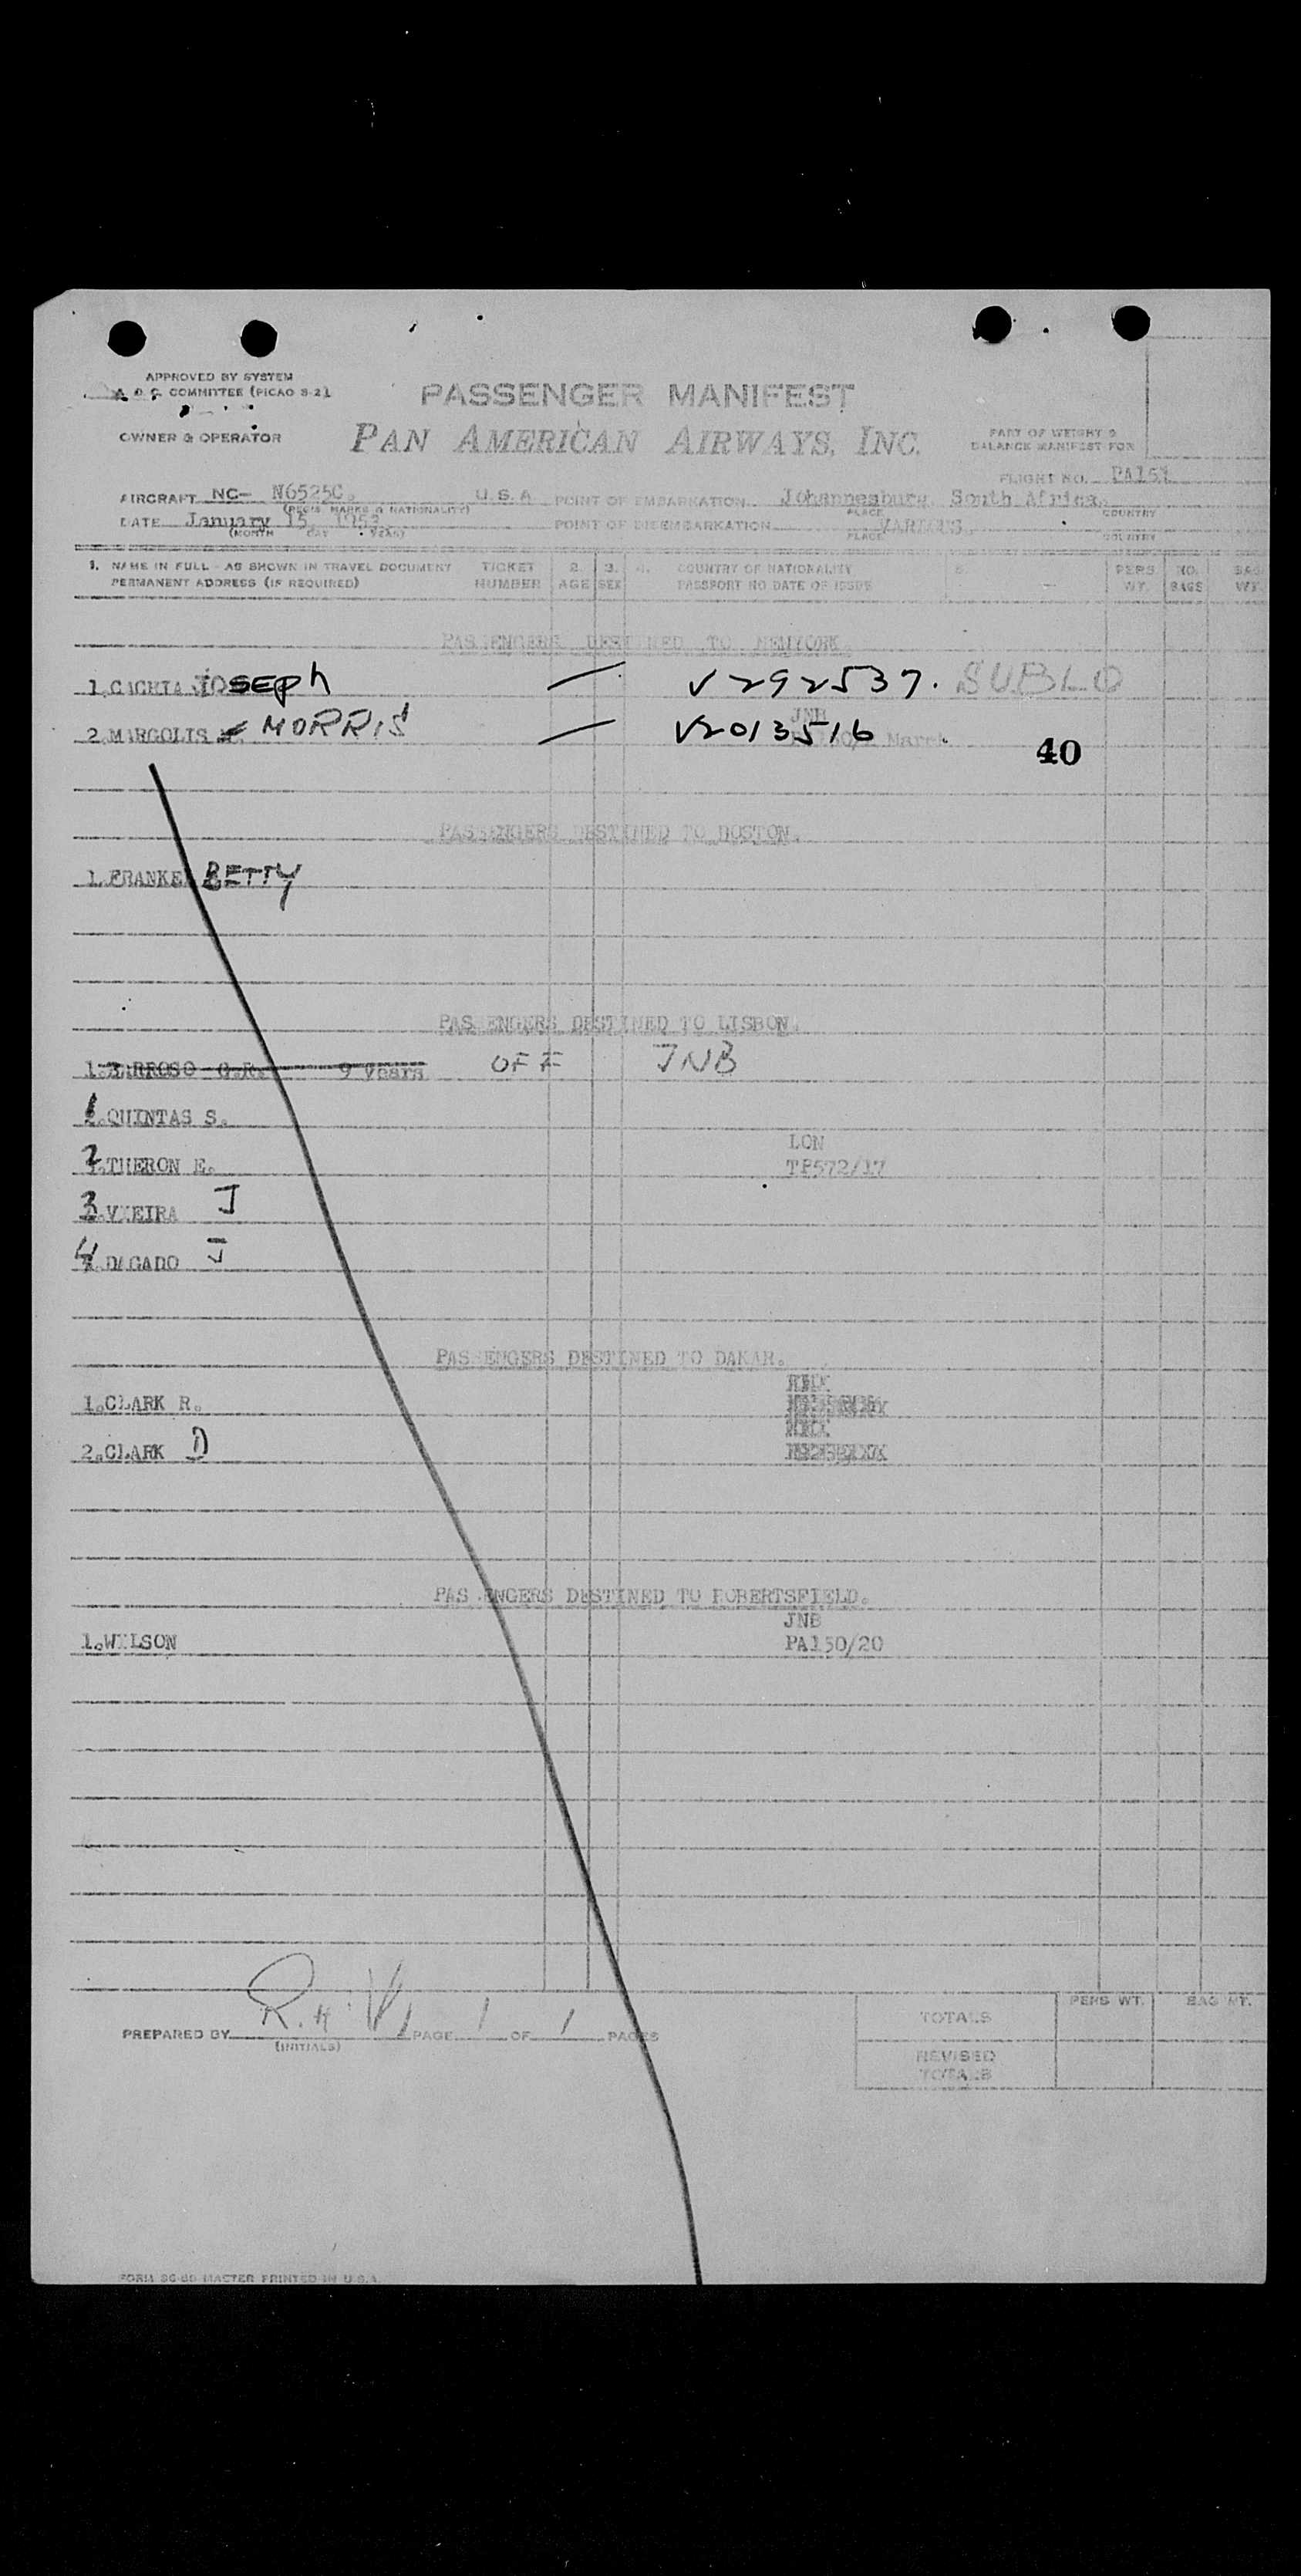 APPROVED BY SYSTEM
A. O. C. COMMITTEE (PICAO S-2)
PASSENGER MANIFEST
OWNER & OPERATOR
PAN AMERICAN AIRWAYS, INC.
PART OF WEIGHT &
BALANCE MANIFEST FOR
FLIGHT NO. PA151
AIRCRAFT NC- N6525C. U. S. A. POINT OF EMBARKATION Johannesburg, South Africa.
(REGIS. MARKS & NATIONALITY) PLACE COUNTRY
DATE January 15, 1953. POINT OF DISEMBARKATION VARIOUS.
(MONTH DAY YEAR) PLACE COUNTRY
1. NAME IN FULL - AS SHOWN IN TRAVEL DOCUMENT TICKET 2. 3. 4. COUNTRY OF NATIONALITY 5. PERS. NO. BAG
PERMANENT ADDRESS (IF REQUIRED) NUMBER AGE SEX PASSPORT NO DATE OF ISSUE WT. BAGS WT.
PASSENGERS DESTINED TO NEWYORK.
1.CACHIA Joseph — V292537. SUBLO
JNB
2.MARGOLIS MORRIS — V2013516 March
40
PASSENGERS DESTINED TO BOSTON.
1.FRANKEL BETTY
PASSENGERS DESTINED TO LISBON.
1.BARROSO G.R. 9 years OFF JNB
1.QUINTAS S.
LON
2.THERON E. TP572/17
3.VIEIRA J
4.DAGADO J
PASSENGERS DESTINED TO DAKAR.
1.CLARK R.
2.CLARK D
PASSENGERS DESTINED TO ROBERTSFIELD.
JNB
1.WILSON PA150/20
PREPARED BY PAGE 1 OF 1 PAGES
(INITIALS)
TOTALS PERS WT. BAG WT.
REVISED
TOTALS
FORM 96-80 MASTER PRINTED IN U.S.A.